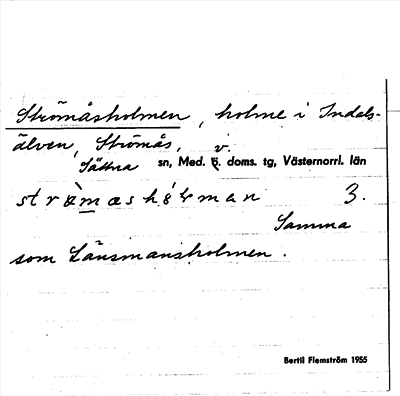 Strömåsholmen, holme i Indals-
älven, Strömås, v.
Sättna sn, Med. doms. tg, Västernorrl. län
3.
Samma
som Länsmansholmen.
Bertil Flemström 1955